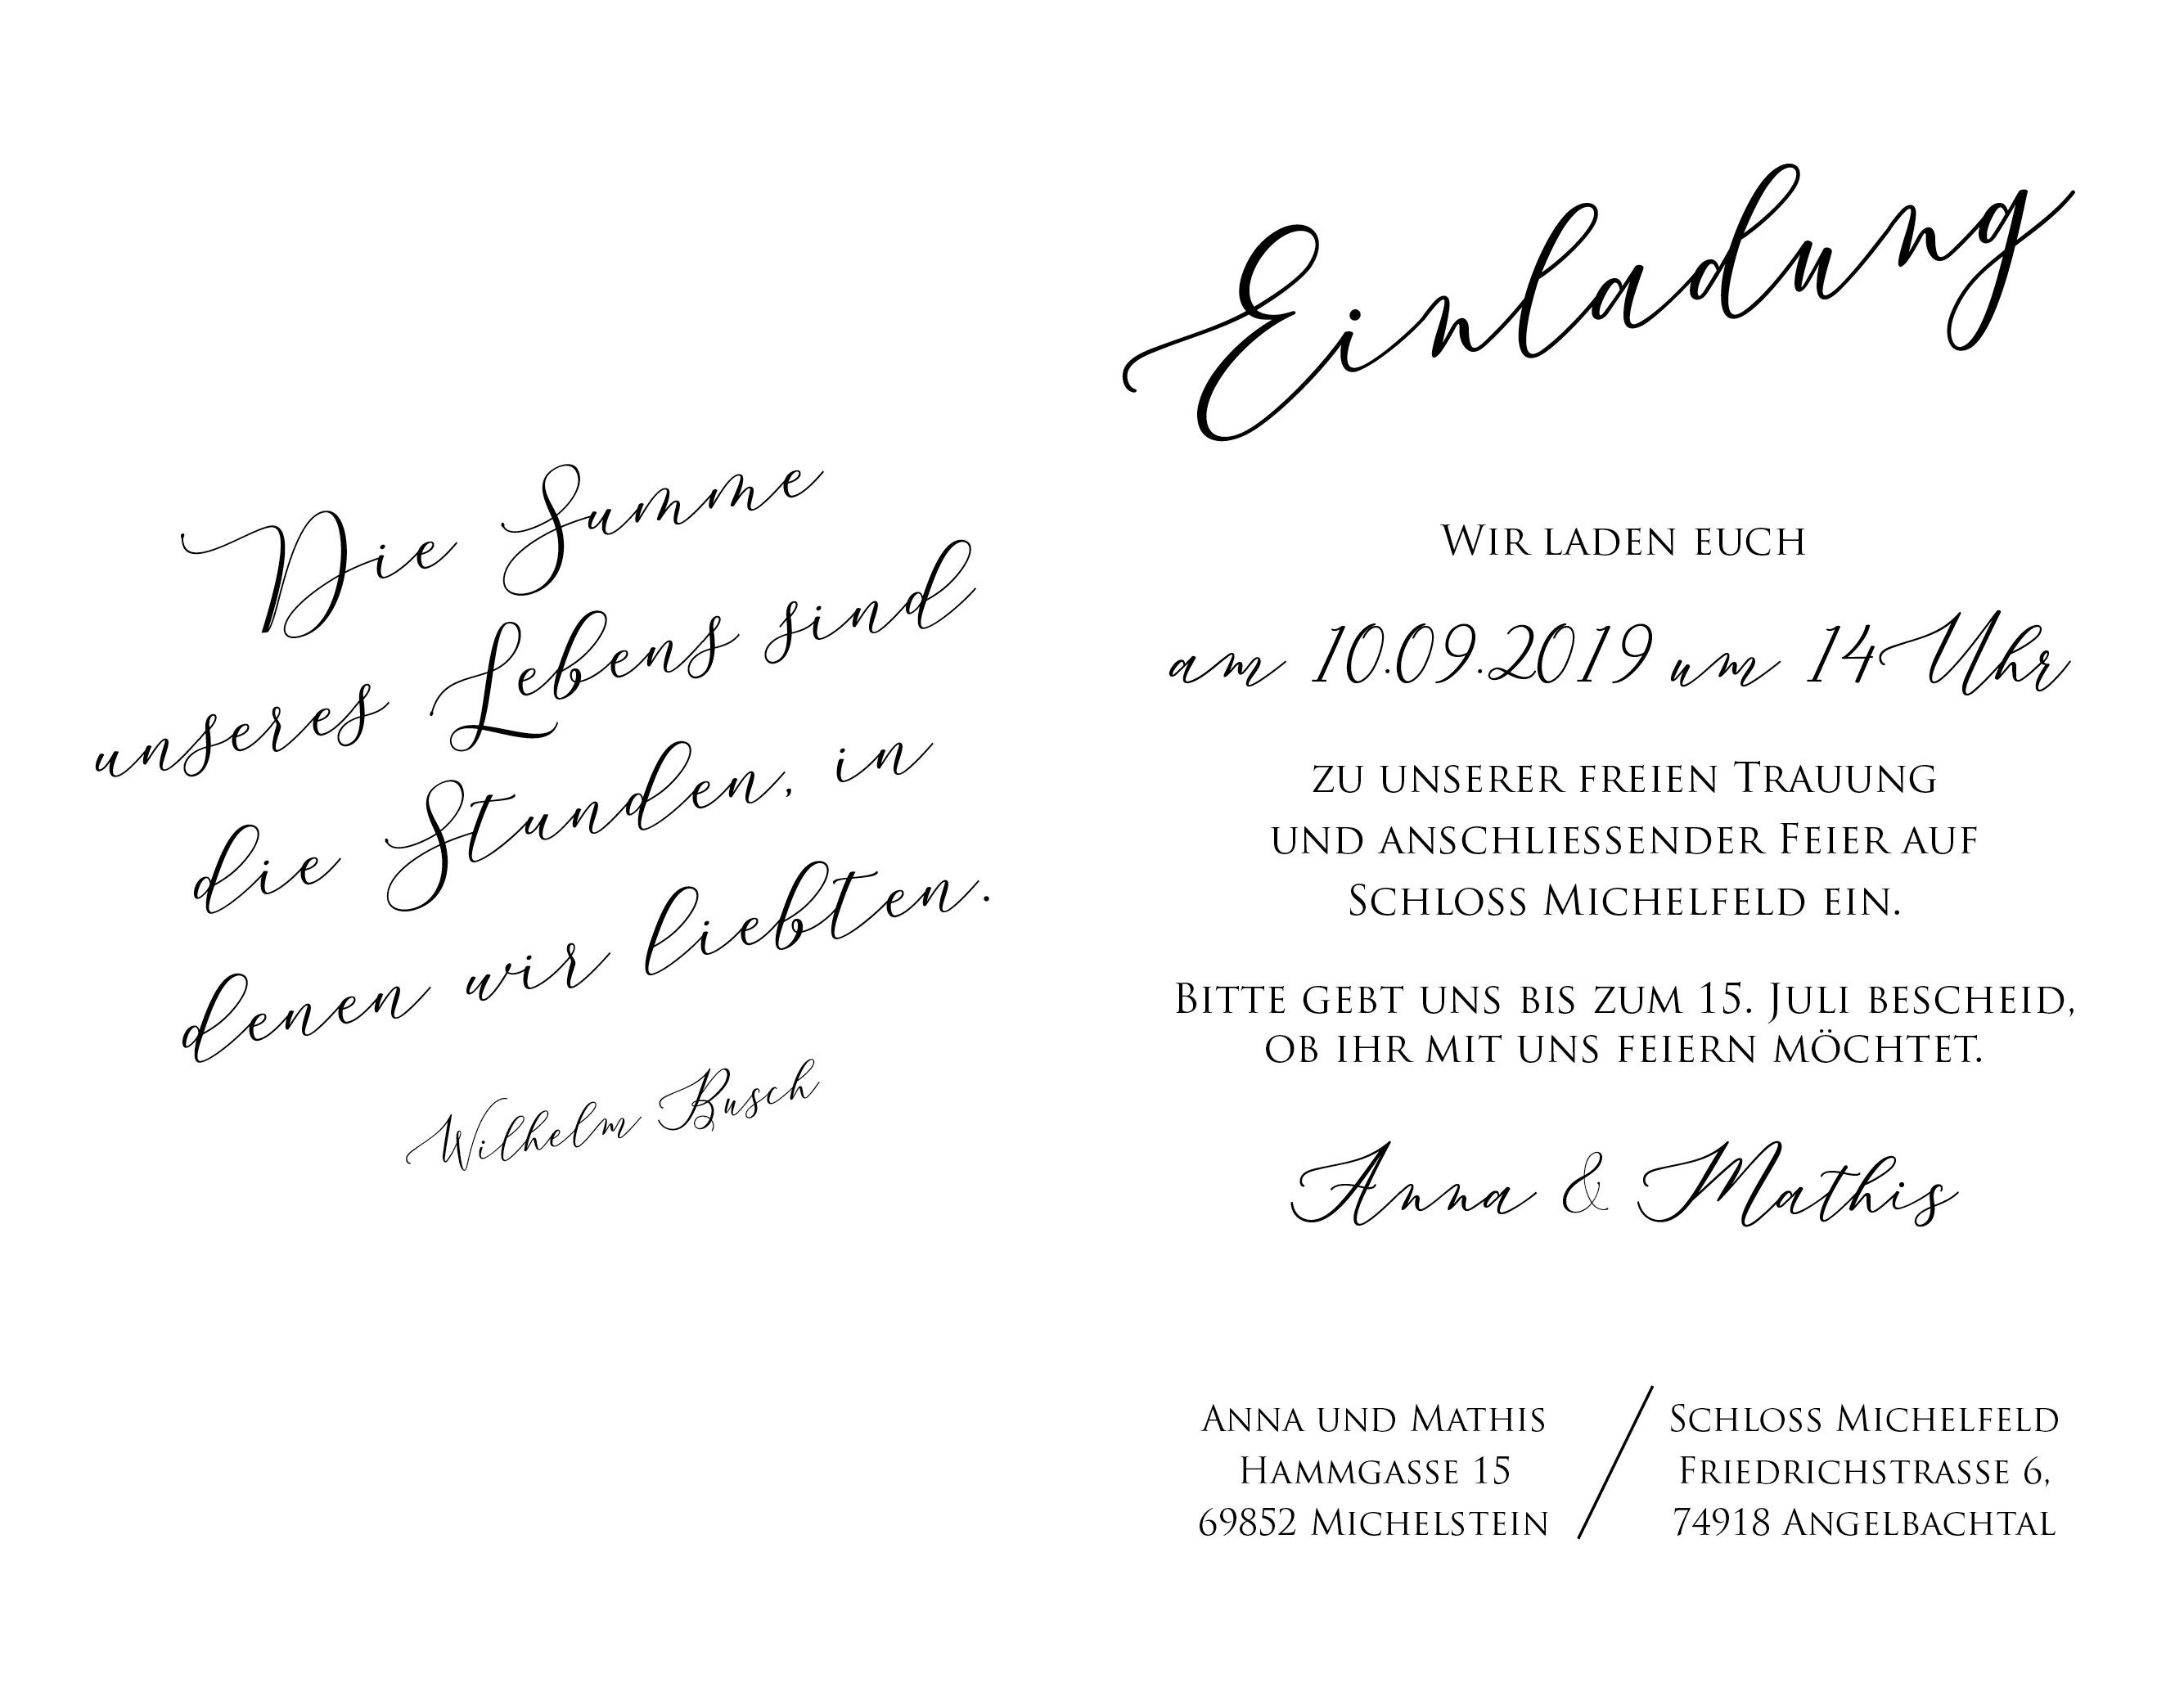 Die Summe
unseres Lebens sind
die Stunden, in
denen wir liebten.
Wilhelm Busch
Einladung
Wir laden euch
am 10.09.2019 um 14 Uhr
zu unserer freien Trauung
und anschliessender Feier auf
Schloss Michelfeld ein.
Bitte gebt uns bis zum 15. Juli bescheid,
ob ihr mit uns feiern möchtet.
Anna & Mathis
Anna und Mathis
Hammgasse 15
69852 Michelstein
Schloss Michelfeld
Friedrichstrasse 6,
74918 Angelbachtal